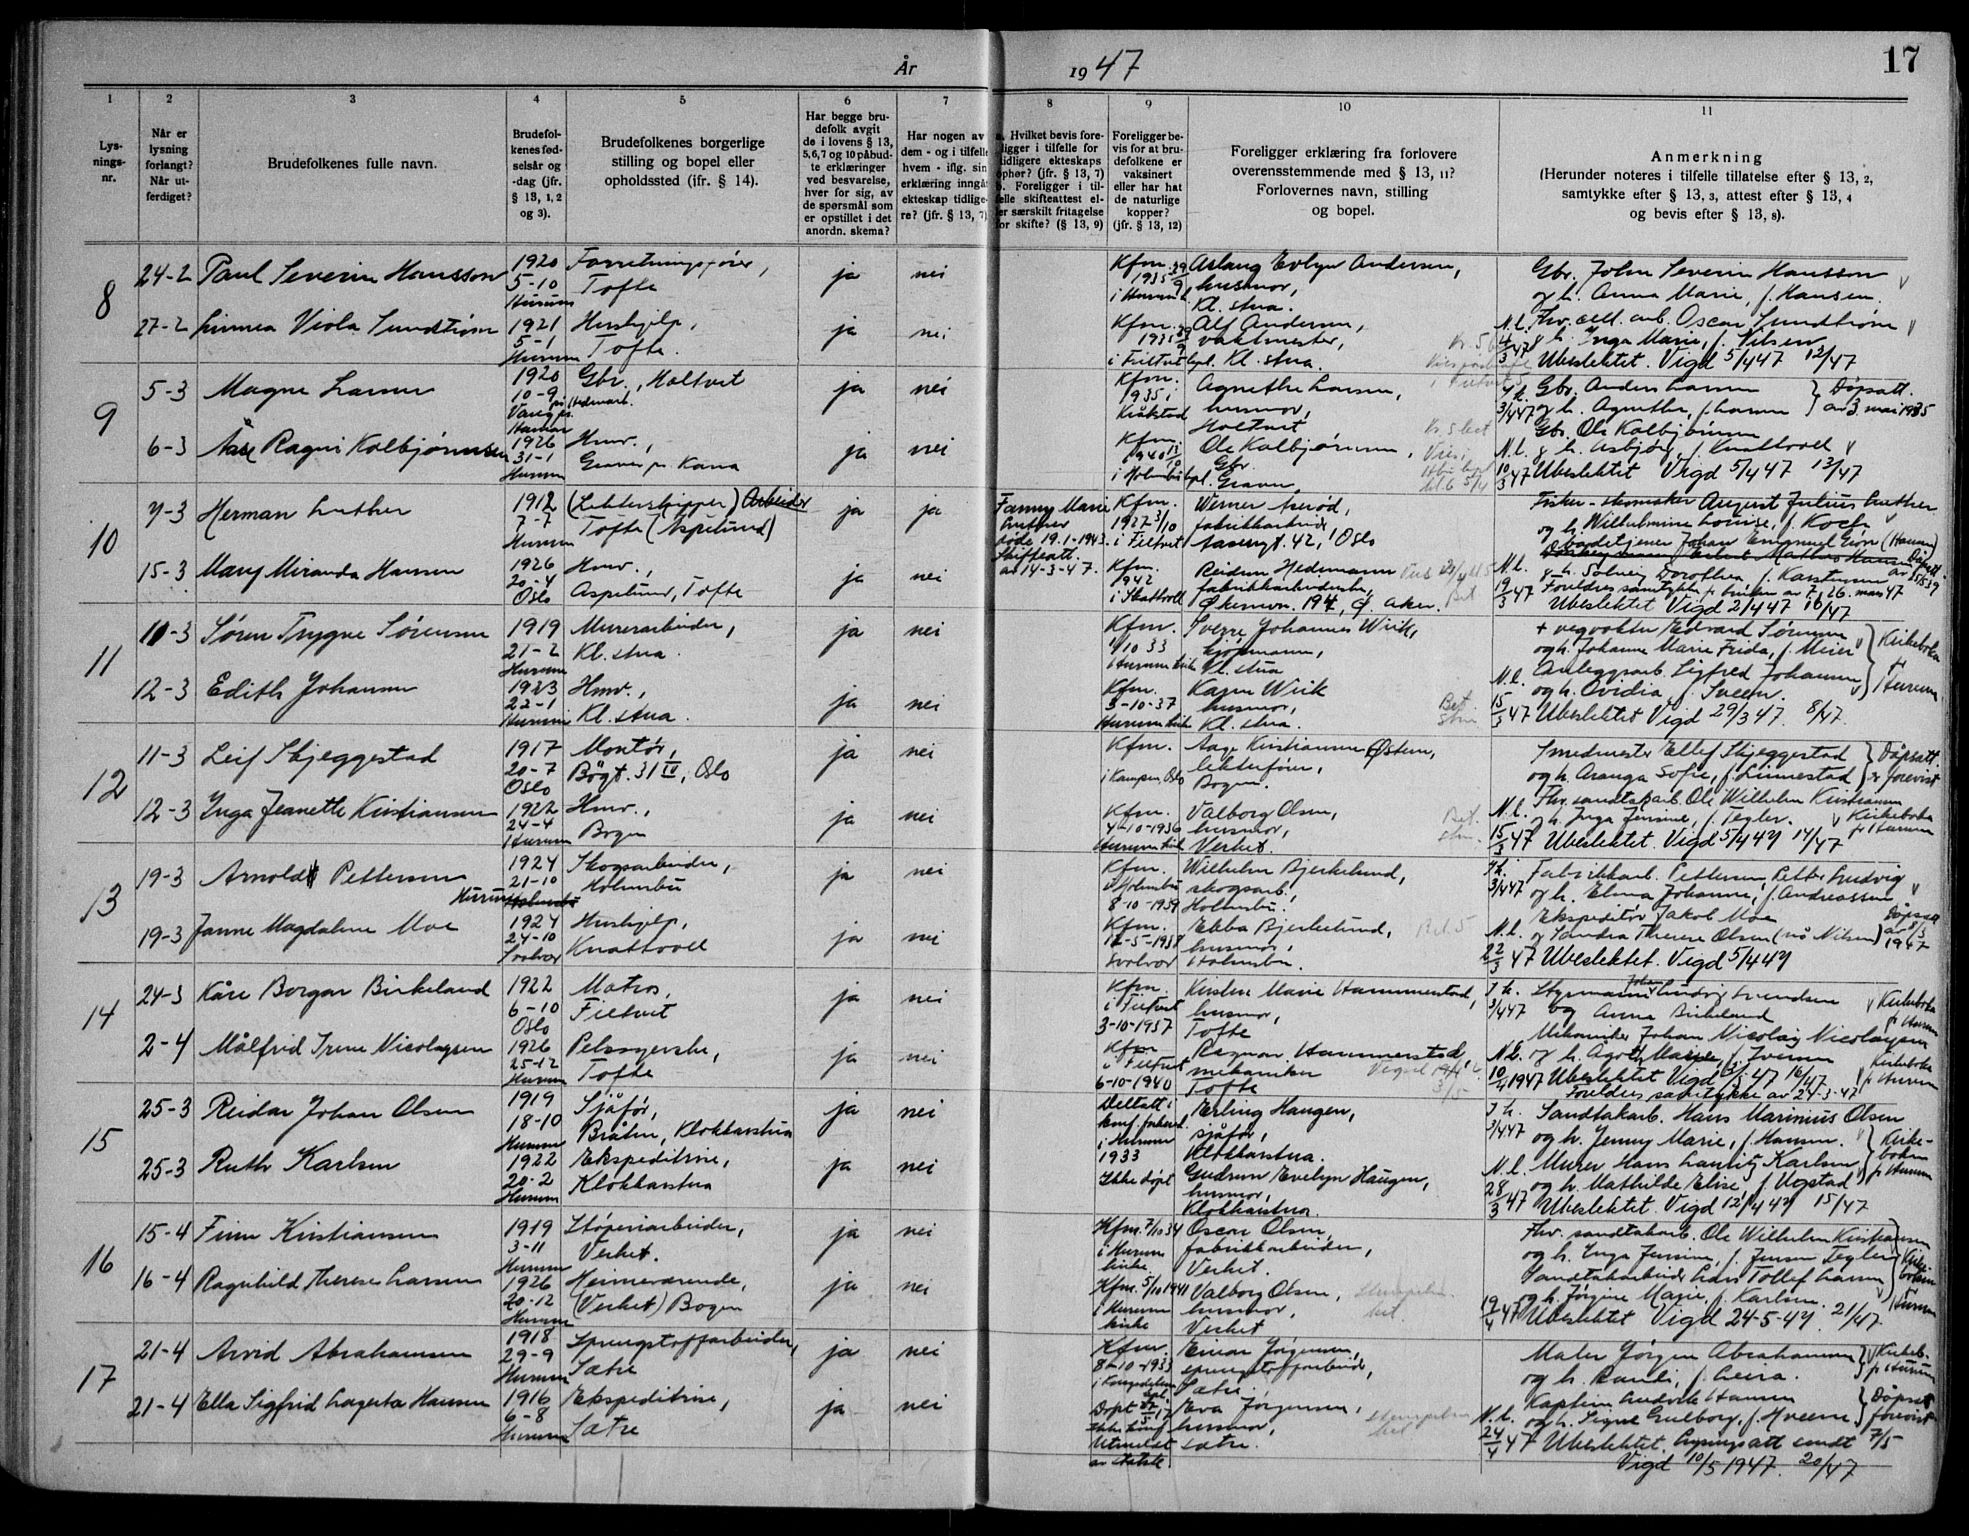 År 1947
17
1
2
3
4
5
6
7
8
9
10
11
Lys-
nings-
nr.
Når er
lysning
forlangt?
Når ut-
ferdiget?
Brudefolkenes fulle navn.
Brudefol-
kenes fød-
selsår og
-dag (jfr.
§ 13, 1, 2
og 3).
Brudefolkenes borgerlige
stilling og bopel eller
opholdssted (ifr. § 14).
Har begge bru-
defolk avgit
de i lovens § 13,
5, 6, 7 og 10 påbud-
te erklæringer
ved besvarelse,
hver for sig, av
de spørsmål som
er opstillet i det
anordn. skema?
Har nogen av
dem - og i tilfelle
hvem - iflg. sin
erklæring inngåt
ekteskap tidlige-
re? (jfr. § 13, 7)
a. Hvilket bevis fore-
ligger i tilfelle for
tidligere ekteskaps
ophør? (jfr. § 13, 7)
b. Foreligger i til-
felle skifteattest el-
ler særskilt fritagelse
for skifte? (§ 13, 9)
Foreligger be-
vis for at bru-
defolkene er
vaksinert
eller har hat
de naturlige
kopper?
(jfr. § 13, 12)
Foreligger erklæring fra forlovere
overensstemmende med § 13, 11?
Forlovernes navn, stilling
og bopel.
Anmerkning
(Herunder noteres i tilfelle tillatelse efter § 13, 2,
samtykke efter § 13, 3, attest efter § 13, 4
og bevis efter § 13, 8).
8
24-2 Paul Severin Hansson
1920
5-10
Hurum
Forretningsfører,
Tofte
ja
nei
Kfm.
1935
i Hurum k.
Aslaug Evlyn Andersen,
husmor,
Kl. stua.
Gbr. John Severin Hansson
og h. Anna Marie, f. Hansen.
27-2 Linnea Viola Sundtrøm
1921
5-1
Hurum
Hushjelp,
Tofte.
ja
nei
Kfm.
1935
i Filtvet kpl.
Alf Andersen,
vaktmester,
Kl. stua.
N.l.
Fhv. cell. arb. Oscar Sundtrøm
og h. Inga Marie, f. Nilsen
Ubeslektet. Vigd 5/4 47 12/47
9
5-3 Magne Larsen
1920
10-9
Vang pr.
Hamar
Gbr., Holtvet
ja
nei
Kfm.
1935 i
Kråkstad
Agnethe Larsen,
husmor,
Holtvet
Gbr. Anders Larsen
og h. Agnethe, f. Larsen
Dåpsatt.
av 3. mai 1935
6-3 Åse Ragni Kolbjørnsen
1926
31-1
Hurum
Hmv.,
Graven pr. Kana
ja
nei
Kfm.
1940
i Holmsbu kpl.
Ole Kolbjørnsen,
Gbr.
Graven
N.l.
10/3 47
Gbr. Ole Kolbjørnsen
og h. Asbjørg, f. Knattvoll
Ubeslektet Vigd 5/4 47 13/47
10
7-3 Herman Luther
1912
7-7
Hurum
(Lekterskipper) Arbeider
Tofte (Aspelund)
ja
ja
Fanny Marie
Luther
døde 19.1-1943.
Skifteatt.
av 14-3-47.
Kfm.
1927 2/10
i Filtvet
Werner Åsrød,
fabrikkarbeider
Aasengt. 42, Oslo
Fisker - skomaker August Julius Luther
og h. Wilhelmine Louise, f. Koch
15-3 Mary Miranda Hansen
1926
20-4
Oslo
Hmv.,
Aspelund, Tofte
ja
nei
Kfm.
1942
i Skattvoll
Reidun Hedemann
fabrikkarbeiderske,
Økernvn. 194, Ø. Aker.
N.l.
19/3 47
Foreldres samtykke for bruden av 7. 26. mars 47
Ubeslektet Vigd 2/4 47 10/47
11
10-3 Søren Trygve Sørensen
1919
21-2
Hurum
Murerarbeider,
Kl. stua.
ja
nei
Kfm.
1/10 33
Hurum kirk
Sverre Johannes Wiik,
kjøpmann,
Kl. stua
+ vegvokter Edvard Sørensen
og h. Johanne Marie Frida, f. Meier
Kirkeboka
f. Hurum
12-3 Edith Johansen
1923
22-1
Hurum
Hmv.,
Kl. stua.
ja
nei
Kfm.
3-10-37
Hurum kirk
Karen Wiik
husmor,
Kl. stua.
N.l.
15/3 47
Anleggsarb. Sigfred Johansen
og h. Ovidia, f. Sveen.
Ubeslektet Vigd 29/3 47. 8/47.
12
11-3 Leif Skjeggestad
1917
20-7
Oslo
Montør,
Bögt. 31 IV, Oslo
ja
nei
Kfm.
i Kampen, Oslo
Aage Kristiansen Østern,
lekterfører,
Bogen.
Smedmester Ellef Skjeggestad
og h. Aranga Sofie, f. Linnestad
Dåpsatt.
er forevist
12-3 Inga Jeanette Kristiansen
1922
24-4
Hurum
Hmv.,
Bogen
ja
nei
Kfm.
4-10-1936
Hurum kirk
Valborg Olsen,
husmor,
Verket.
N.l.
15/3 47
Fhv. sandtakarb. Ole Wilhelm Kristiansen
og h. Inga Jensine, f. Tegler.
Kirkeboka
f. Hurum
Ubeslektet. Vigd 5/4 47 14/47
13
19-3 Arnold Pettersen
1924
21-10
Hurum
Skogsarbeider,
Holmsbu
ja
nei
Kfm.
i Holmsbu
8-10-1939
Wilhelm Bjerkelund,
skogsarb.
Holmsbu.
Fabrikkarb. Pettersen, Petter Ludvig
og h. Elma Johanne, f. Andreassen
19-3 Janne Magdalene Moe
1924
24-10
Svolvær
Hushjelp,
Knattvoll
ja
nei
Kfm.
12-5-1938
Svolvær
Ebba Bjerkelund,
husmor,
Holmsbu.
N.l.
22/3 47
Ekspeditør Jakob Moe
og Sandra Therese Olsen (nå Nilsen)
Dåpsatt
av 8/3
1947
Ubeslektet. Vigd 5/4 47
14
24-3 Kåre Borgar Birkeland
1922
6-10
Oslo
Matros,
Filtvet
ja
nei
Kfm.
i Filtvet
3-10-1937
Kirsten Marie Hammerstad,
husmor,
Tofte
Styrmann Johan Ludvig Svendsen
og Anna Birkeland
Kirkeboka
f. Hurum
2-4 Målfrid Irene Nicolaysen
1926
25-12
Hurum
Pelssyerske,
Tofte
ja
nei
Kfm
i Filtvet
6-10-1940
Ragnar Hammerstad,
mekaniker
Tofte
N.l.
10/4 1947
Mekaniker Johan Nicolay Nicolaysen
og h. Agoth Marie, f. Iversen
Ubeslektet Vigd 3/5 47 16/47
Foreldres samtykke av 24-3-47
Kirkeboka
f. Hurum
15
25-3 Reidar Johan Olsen
1919
18-10
Hurum
Sjåfør,
Bråten, Klokkarstua
ja
nei
Deltatt i
konf. forbered.
i Hurum
1933
Erling Haugen,
sjåfør,
Klokkarstua.
Sandtakarb. Hans Marinius Olsen
og h. Jenny Marie, f. Hansen.
Kirke-
boken
f. Hurum
25-3 Ruth Karlsen
1922
20-2
Hurum
Ekspeditrise,
Klokkarstua
ja
nei
Ikke døpt
Gudrun Evelyn Haugen,
husmor,
Klokkarstua.
N.l.
28/3 47
Murer Hans Lauritz Karlsen,
og h. Mathilde Elise, f. Ugstad
Ubeslektet. Vigd 12/4 47 15/47
16
15-4 Finn Kristiansen
1919
3-11
Hurum
Støperiarbeider,
Verket.
ja
nei
Kfm. 7/10 34
i Hurum
kirke
Oscar Olsen,
fabrikkarbeider,
Verket.
Fhv. sandtakarb. Ole Wilhelm Kristiansen
og h. Inga Jensine, f. Jensen Tegler
16-4 Ragnhild Therese Larsen
1926
20-12
Hurum
Heimeværende,
(Verket) Bogen
ja
nei
Kfm. 5/10 1941
i Hurum
kirke
Valborg Olsen,
husmor,
Verket
19/4 47
Sandtakarbeider Lars Tollef Larsen
og h. Jørgine Marie, f. Karlsen.
Ubeslektet Vigd 24-5-47. 21/47.
17
21-4 Arvid Abrahamsen
1918
29-9
Hurum
Sprengstoffarbeider,
Sætre
ja
nei
Kfm.
8-10-1933
i Kongsdelene
kpl.
Einar Jørgensen,
sprengstoffarbeid,
Sætre.
Maler Jørgen Abrahamsen
og h. Randi, f. Leira.
Kirkeb.
f. Hurum
21-4 Ella Sigfrid Lagerta Hansen
1916
6-8
Hurum
Ekspeditrise,
Sætre
ja
nei
Døpt
Ikke konf.
Utmeldt
av statsk.
Eva Jørgensen,
husmor,
Sætre.
N.l.
24/4 47
Kaptein Ludvik Hansen
og h. Signe Gulborg, f. Hveem
Dåpsatt
forevist
Ubeslektet. Lysningsatt sendt 7/5
Vigd 10/5 1947. 20/47